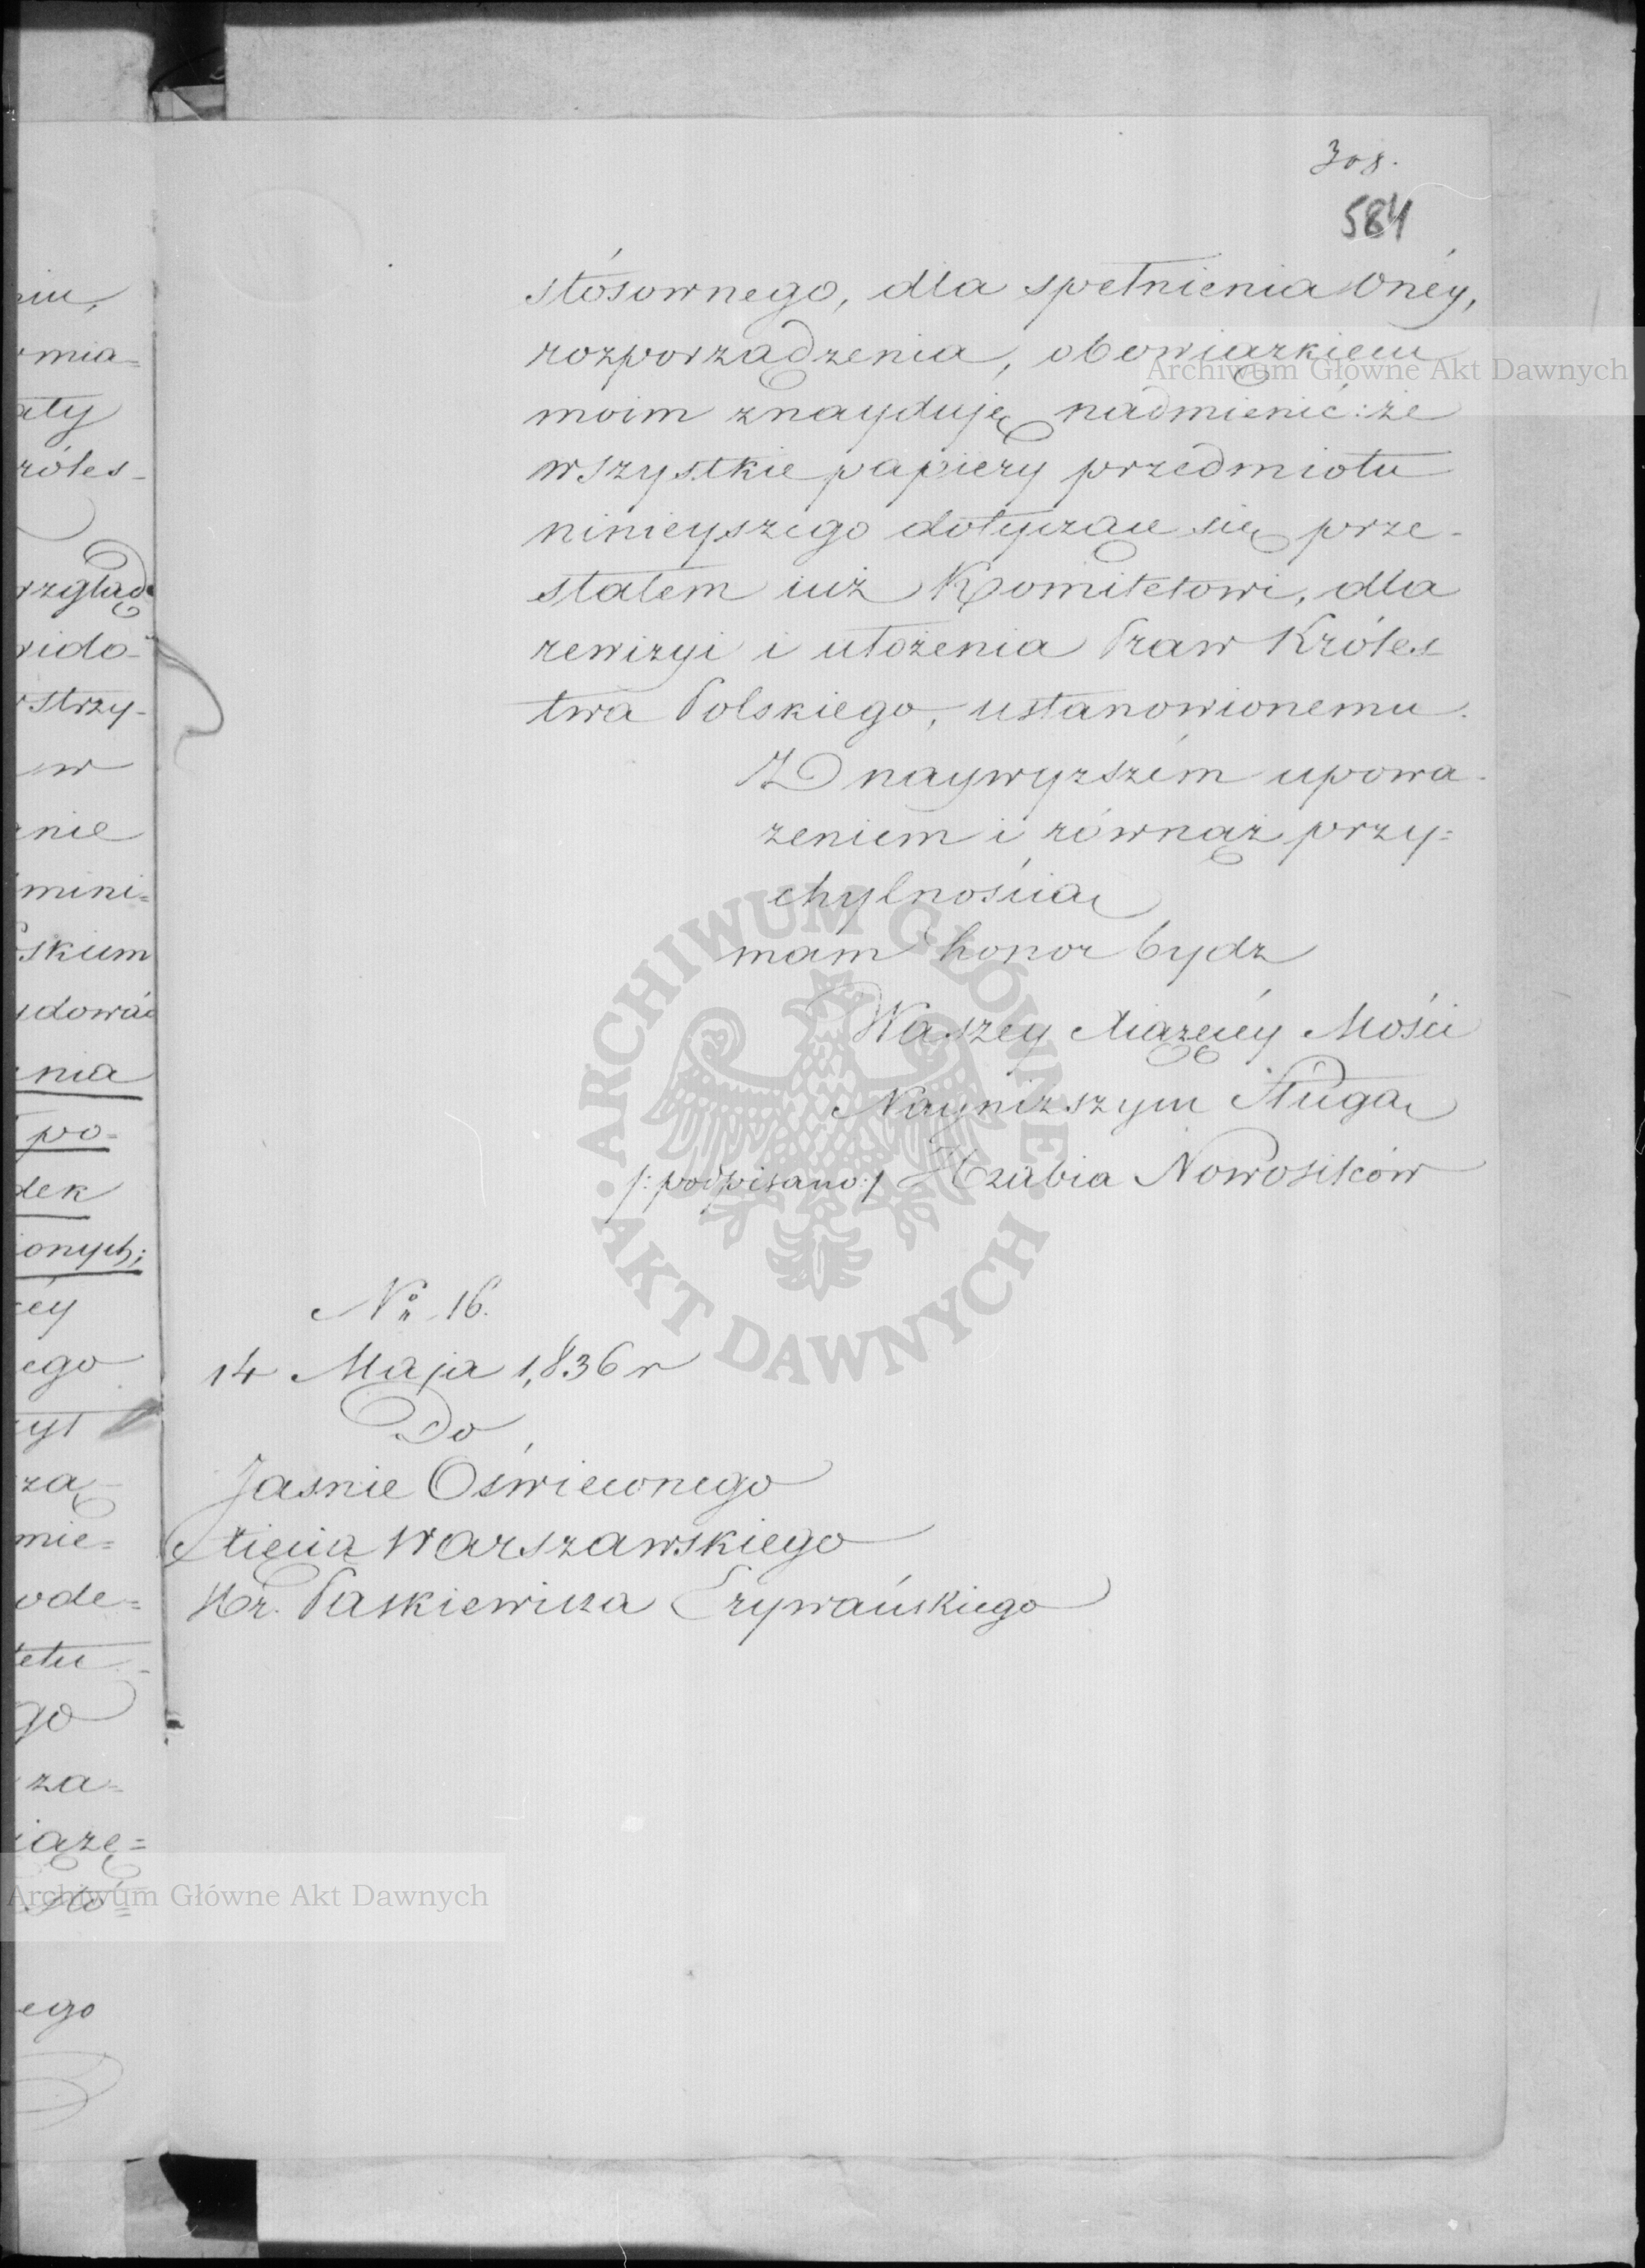 308.
584
stósownego, dla spełnienia onéy,
rozporządzenia, obowiązkiem
moim znayduję nadmienić: że
wszystkie papiery przedmiotu
ninieyszego dotyczące się prze-
słałem iuż Komitetowi, dla
rewizyi i ułożenia Praw Króles-
twa Polskiego, ustanowionemu.
Z naywyższém upowa-
żeniem i równąż przy=
chylnością
mam honor bydz
Waszey Xiążęcéy Mości
Nayniższym Sługą
/: podpisano :/ Hrabia Nowosilców
No 16.
14 Maja 1,836 r
Do
Jaśnie Oświeconego
Xięcia Warszawskiego
Hr. Paskiewicza Erywańskiego
niu,
mia=
aty
róles-
wzgląd
wido-
strzy-
w
nie
mini=
skium
dować
nia
po=
dek
ionych;
éy
ego
zył
zą
mie=
ode=
tetu
go
za=
iążę=
stó=
ego
Archiwum Główne Akt Dawnych
ARCHIWUM GŁÓWNE AKT DAWNYCH
Archiwum Główne Akt Dawnych